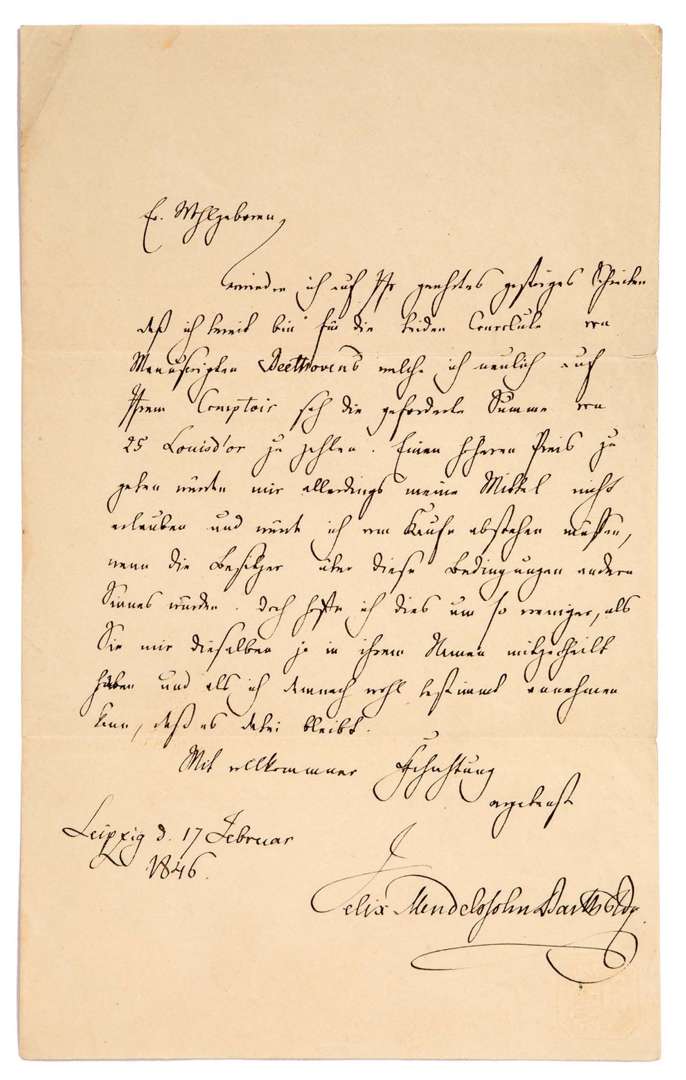 Ew. Wohlgeboren,
erwiedre ich auf Ihr geehrtes gestriges Schreiben
daß ich bereit bin für die beiden von
Manuscripten Beethovens welche ich neulich auf
Ihrem Comptoir sah die geforderte Summe von
25 Louisd'or zu zahlen. Einen höheren Preis zu
geben würden mir allerdings meine Mittel nicht
erlauben und würde ich vom Kaufe abstehen müssen,
wenn die Besitzer über diese Bedingungen andern
Sinnes würden. Doch hoffe ich dies um so weniger, als
Sie mir dieselben ja in ihrem Namen mitgetheilt
haben und als ich demnach wohl bestimmt annehmen
kann, daß es dabei bleibt.
Mit vollkommner Hochachtung
ergebenst
Leipzig d. 17 Februar
1846.
Felix Mendelssohn Bartholdy